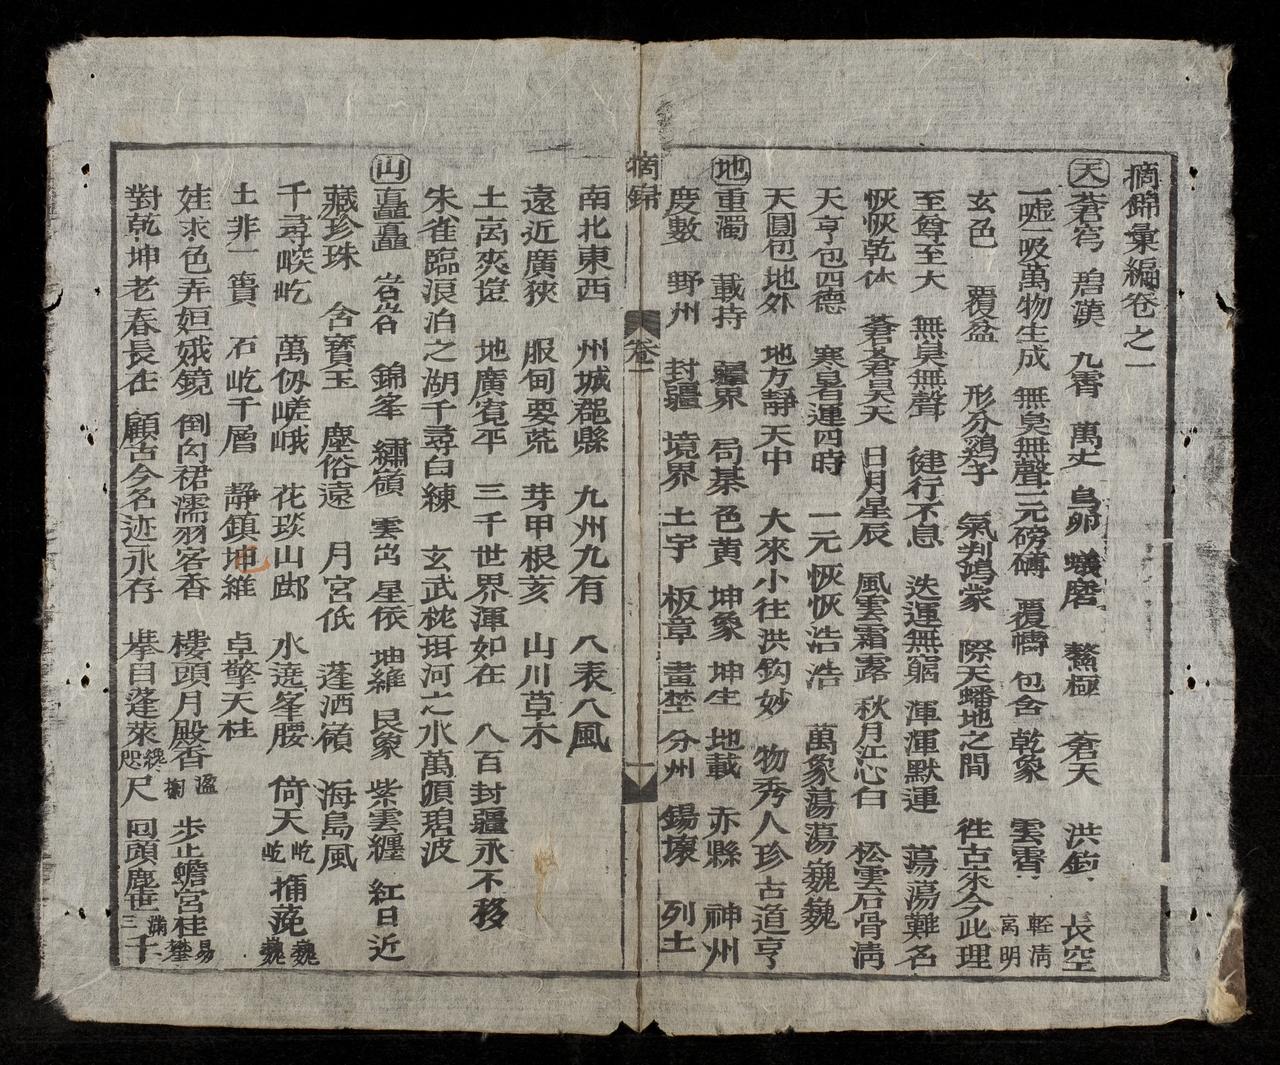 摘錦彙編卷之一
天 蒼穹 碧漢 九霄 萬丈 鳥卵 蟻磨 鰲極 蒼天 洪鈞 長空
一噓一吸萬物生成 無臭無聲 一元磅礴 覆幬 包含 乾象 雲霄 輕清 高明
玄色 覆盆 形分鷄子 氣判鴻蒙 際天蟠地之間 徃古來今此理
至尊至大 無臭無聲 健行不息 迭運無窮 渾渾默運 蕩蕩難名
恢恢乾体 蒼蒼昊天 日月星辰 風雲霜露 秋月江心白 松雲石骨清
天亨包四德 寒暑運四時 一元恢恢浩浩 萬象蕩蕩巍巍
天圓包地外 地方靜天中 大來小往洪鈞妙 物秀人珍古道亨
地 重濁 載持 疆界 局棊 色黄 坤象 坤生 地載 赤縣 神州
度數 野州 封疆 境界 土宇 板章 畫埜 分州 錫壤 列土
摘錦 卷一
南北東西 州城郡縣 九州九有 八表八風
遠近廣狹 服甸要荒 芽甲根荄 山川草木
土高爽塏 地廣寬平 三千世界渾如在 八百封疆永不移
朱雀臨浪泊之湖千尋白練 玄武枕珥河之水萬頃碧波
山 矗矗 岧岧 錦峯 繡嶺 雲岀 星依 地維 艮象 紫雲纏 紅日近
藏珍珠 含寳玉 塵俗遠 月宮低 蓬洒嶺 海島風
千尋 屹 萬仞嵯峨 花琰山 水遶峯腰 倚天屹屹 捅 巍巍
土非一簣 石屹千層 靜鎮地維 卓擎天柱
娃求色弄姮娥鏡 倒 裙濡羽客香 樓頭月殿香 步止蟾宮桂易攀
對乾坤老春長在 顧古今名迹永存 擧目蓬萊纔咫尺 回頭塵世滿三千